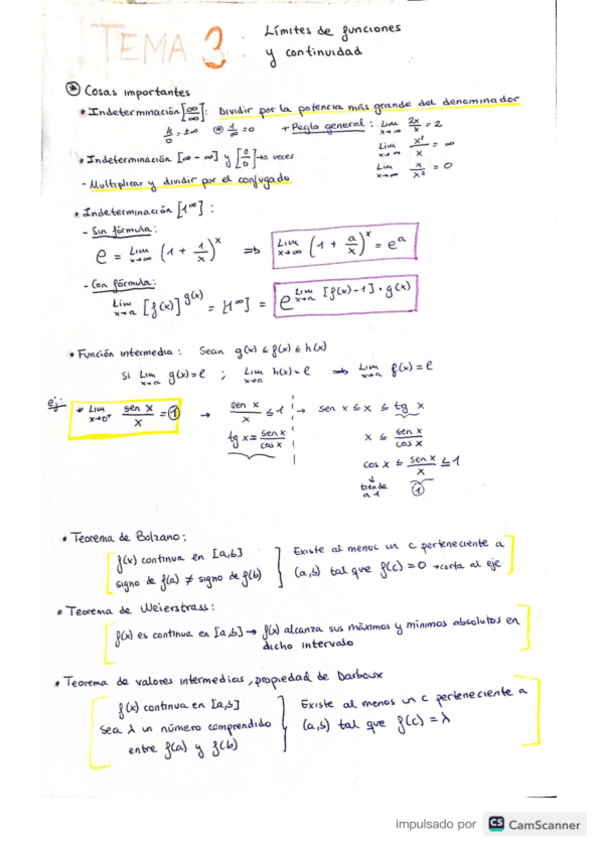 TEMA 3: Límites de funciones
y continuidad
* Cosas importantes
• Indeterminación [∞/∞]: Dividir por la potencia más grande del denominador
k/0 = ±∞ * 1/∞ = 0 + Regla general: Lim x→∞ 2x/x = 2
Lim x→∞ x²/x = ∞
• Indeterminación [∞ - ∞] y [0/0] → a veces
Lim x→∞ x/x² = 0
- Multiplicar y dividir por el conjugado
• Indeterminación [1^∞]:
- Sin fórmula:
e = Lim x→∞ (1 + 1/x)^x ⇒ Lim x→∞ (1 + a/x)^x = e^a
- Con fórmula:
Lim x→a [f(x)]^g(x) = [1^∞] = e^Lim x→a [f(x)-1]·g(x)
• Función intermedia: Sean g(x) ≤ f(x) ≤ h(x)
Si Lim x→a g(x) = l ; Lim x→a h(x) = l ⇒ Lim x→a f(x) = l
ej: * Lim x→0⁺ sen x/x = 1 → sen x/x ≤ 1 → sen x ≤ x ≤ tg x
tg x = sen x/cos x x ≤ sen x/cos x
cos x ≤ sen x/x ≤ 1
↓ tiende a 1 1
• Teorema de Bolzano:
f(x) continua en [a,b]
signo de f(a) ≠ signo de f(b)
} Existe al menos un c perteneciente a
(a,b) tal que f(c) = 0 → corta al eje
• Teorema de Weierstrass:
f(x) es continua en [a,b] → f(x) alcanza sus máximos y mínimos absolutos en
dicho intervalo
• Teorema de valores intermedios, propiedad de Darboux
f(x) continua en [a,b]
sea λ un número comprendido
entre f(a) y f(b)
} Existe al menos un c perteneciente a
(a,b) tal que f(c) = λ
impulsado por CS CamScanner